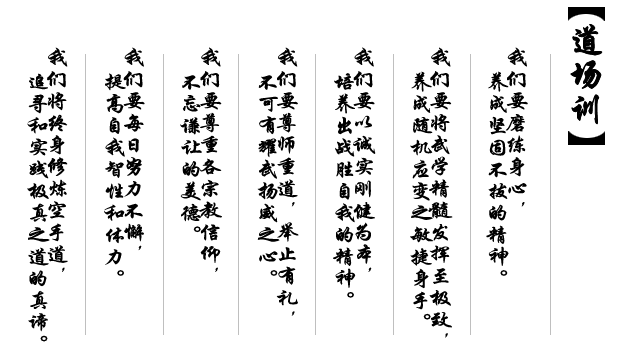 道场训
我们要磨练身心，
养成坚固不拔的精神。
我们要将武学精髓发挥至极致，
养成随机应变之敏捷身手。
我们要以诚实刚健为本，
培养出战胜自我的精神。
我们要尊师重道，举止有礼，
不可有耀武扬威之心。
我们要尊重各宗教信仰，
不忘谦让的美德。
我们要每日努力不懈，
提高自我智性和体力。
我们将终身修炼空手道，
追寻和实践极真之道的真谛。